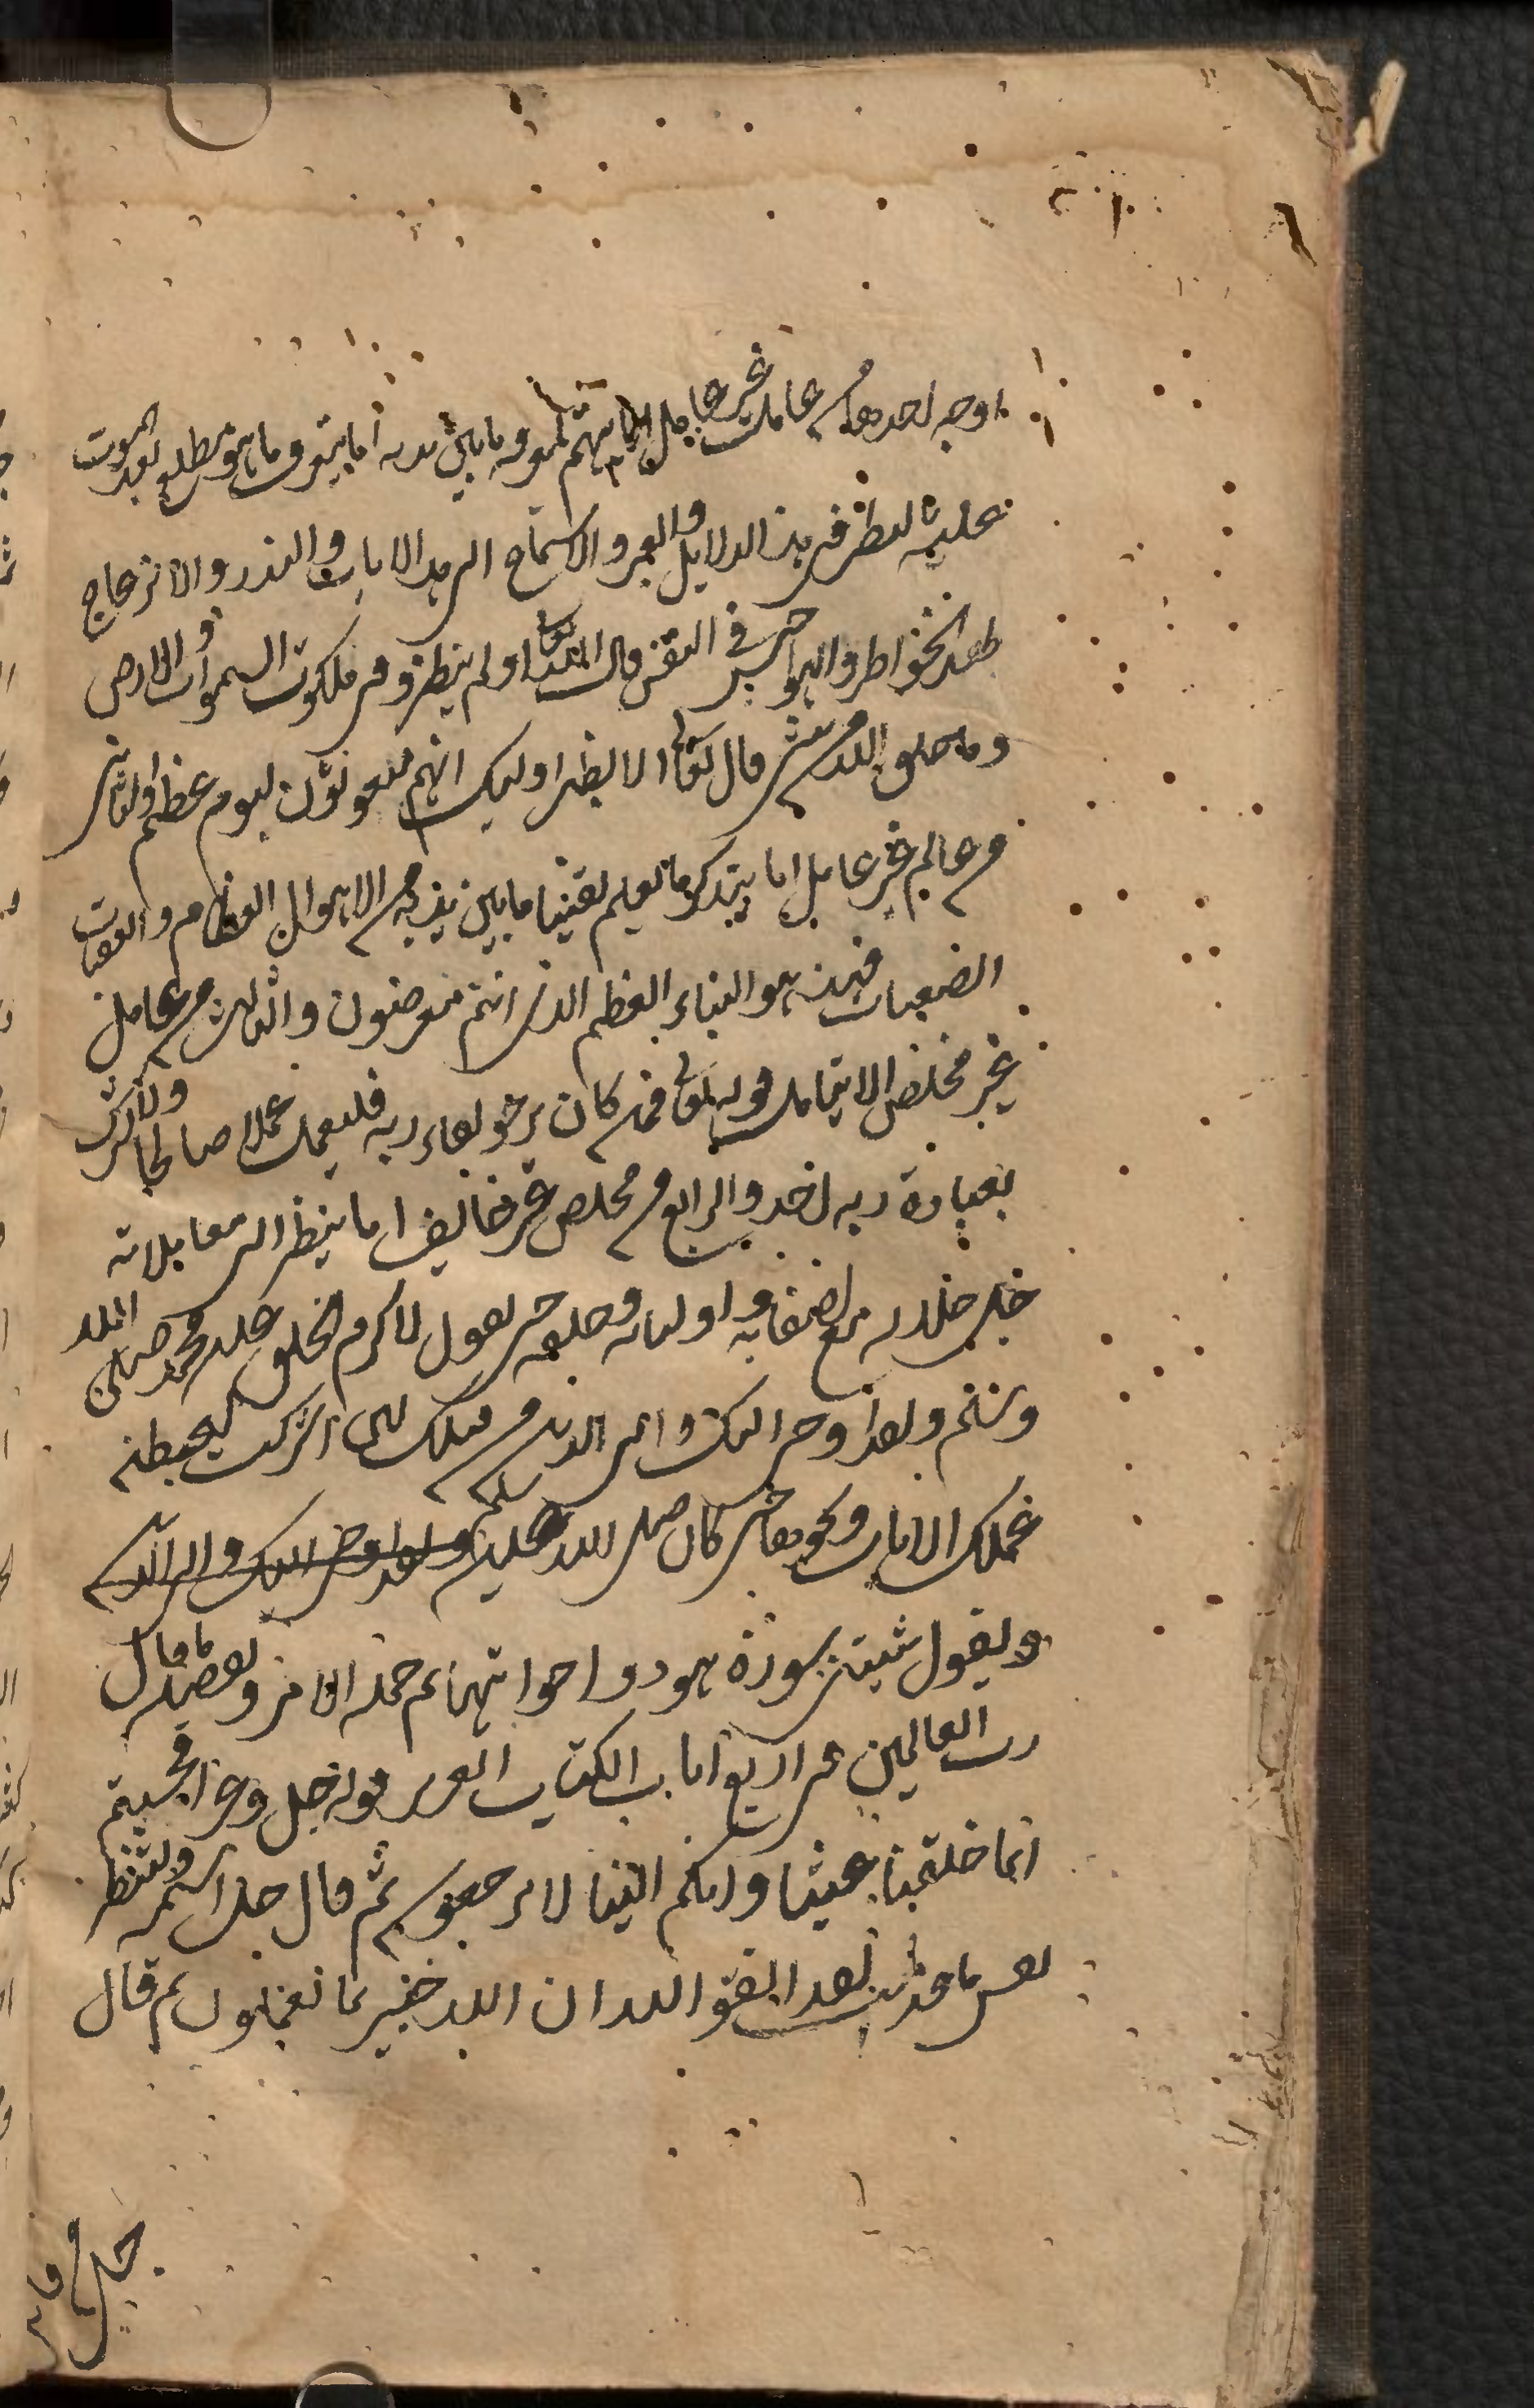 اوجه احدها من عاقل غير عامل اما يهتم لمعرفة ما بين يديه اما يتعرف ما هو مطلع بعد الموت
عليه لنظر في هذه الدلايل والعبر والاستماع الى هذه الايات والنذر والانزعاج
بهذه الخواطر والهواجس في النفس قال الله تعالى اولم ينظروا في ملكوت السموات والارض
وما خلق الله من شئ قال تعالى الا يظن اوليك انهم مبعوثون ليوم عظيم والثاني
من عالم غير عامل اما يتذكر ما يعلم يقينا ما بين يديه من الاهوال العظام والعقبات
الصعبات فهذه هو النباء العظيم الذي انتم عنه معرضون والثالث من عامل
غير مخلص الا يتامل قوله تعالى فمن كان يرجو لقاء ربه فليعمل عملا صالحا ولا يشرك
بعبادة ربه احد والرابع من مخلص غير خايف اما ينظر الى معاملاته
جل جلاله مع اصفيايه واوليايه وخلقه حتى يقول لاكرم الخلق عليه محمد صلى الله
وسلم ولقد اوحي اليك والى الذين من قبلك لئن اشركت ليحبطن
عملك الايات ونحوها حتى كان صلى الله عليه وسلم ولقد اوحي اليك والى الذين
ويقول شيبتني سورة هود واخواتها ثم جملة الامر وتفصيله ما قال
رب العالمين في اربع ايات الكتاب العزيز قوله جل وعز افحسبتم
انما خلقناكم عبثا وانكم الينا لا ترجعون ثم قال جل اسمه ولتنظر
نفس ما قدمت لغد اتقوا الله ان الله خبير بما تعملون ثم قال
جل من قايل